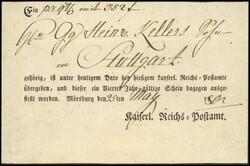 Ein mit 352 f
Heinr. Kellers
in Stuttgart
gehörig, ist unter heutigem Dato bey hiesigem kayserl. Reichs-Postamte
übergeben, und dieser ein Viertel-Jahr-gültige Schein dagegen ausge-
stellt worden. Mörsburg den May
Kaiserl. Reichs-Postamt.